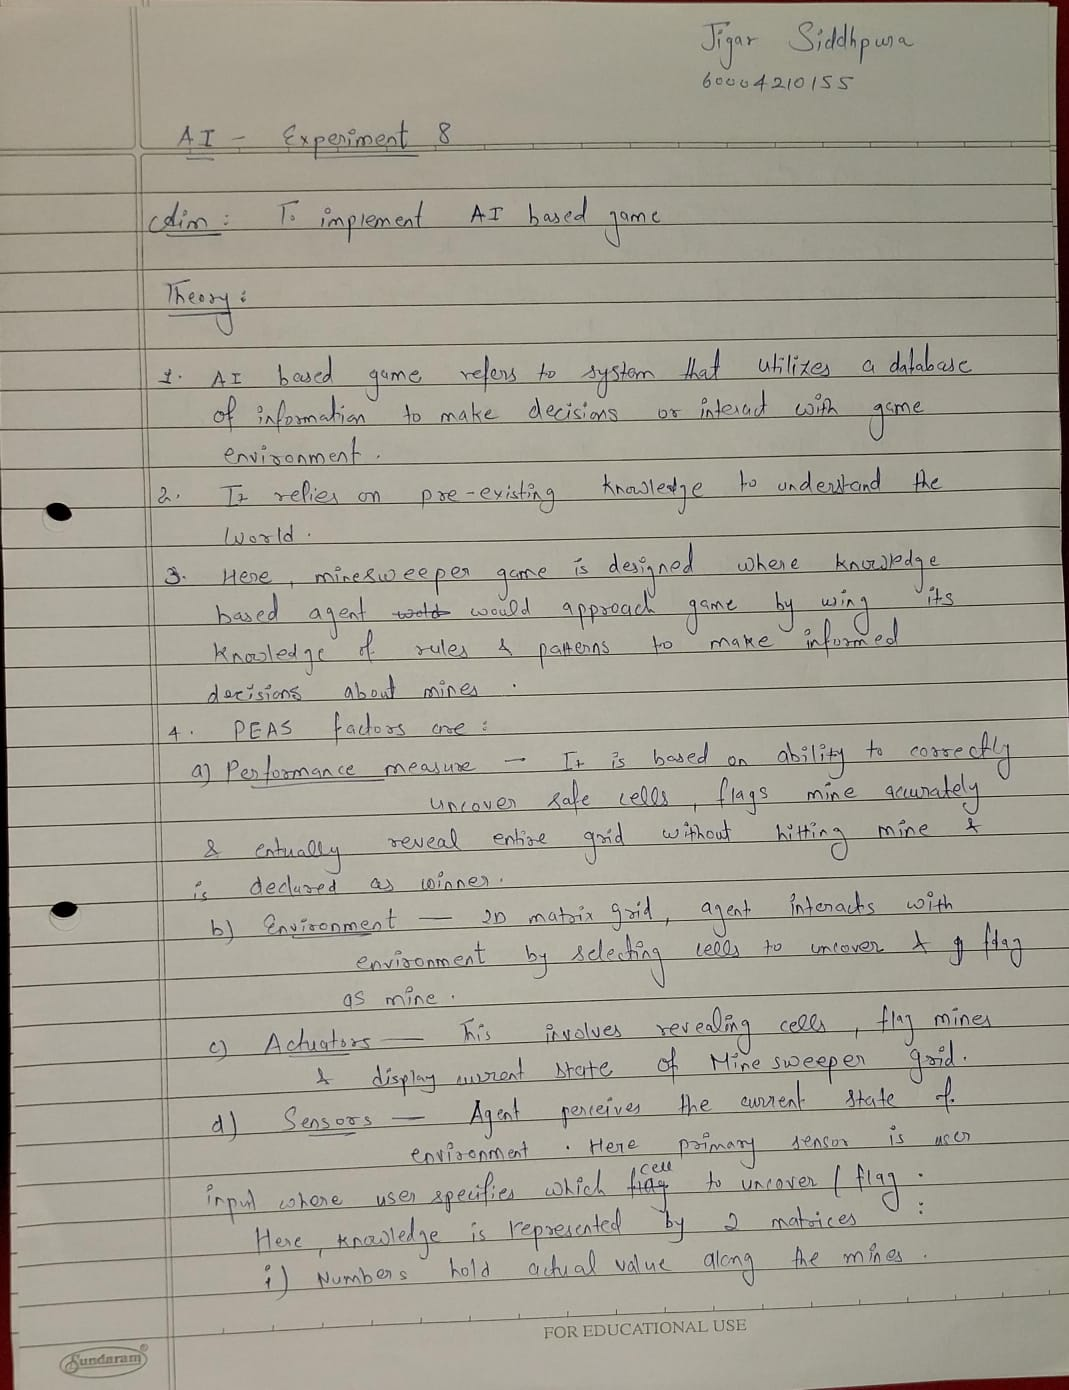 Jigar Siddhpura
60004210155
AI - Experiment 8
Aim : To implement AI based game
Theory :
1. AI based game refers to system that utilizes a database
of information to make decisions or interact with game
environment .
2. It relies on pre-existing knowledge to understand the
World .
3. Here , minesweeper game is designed where knowledge
based agent would approach game by using its
knowledge of rules & patterns to make informed
decisions about mines .
4. PEAS factors are :
a) Performance measure - It is based on ability to correctly
uncover safe cells , flags mine accurately
& entually reveal entire grid without hitting mine &
is declared as winner .
b) Environment - 2D matrix grid , agent interacts with
environment by selecting cells to uncover & flag
as mine .
c) Actuators - This involves revealing cells , flag mines
& display current state of Mine sweeper grid .
d) Sensors - Agent perceives the current state of
environment . Here primary sensor is user
cell
input where user specifies which flag to uncover / flag .
Here , knowledge is represented by 2 matrices :
i) Numbers hold actual value along the mines .
FOR EDUCATIONAL USE
Sundaram®